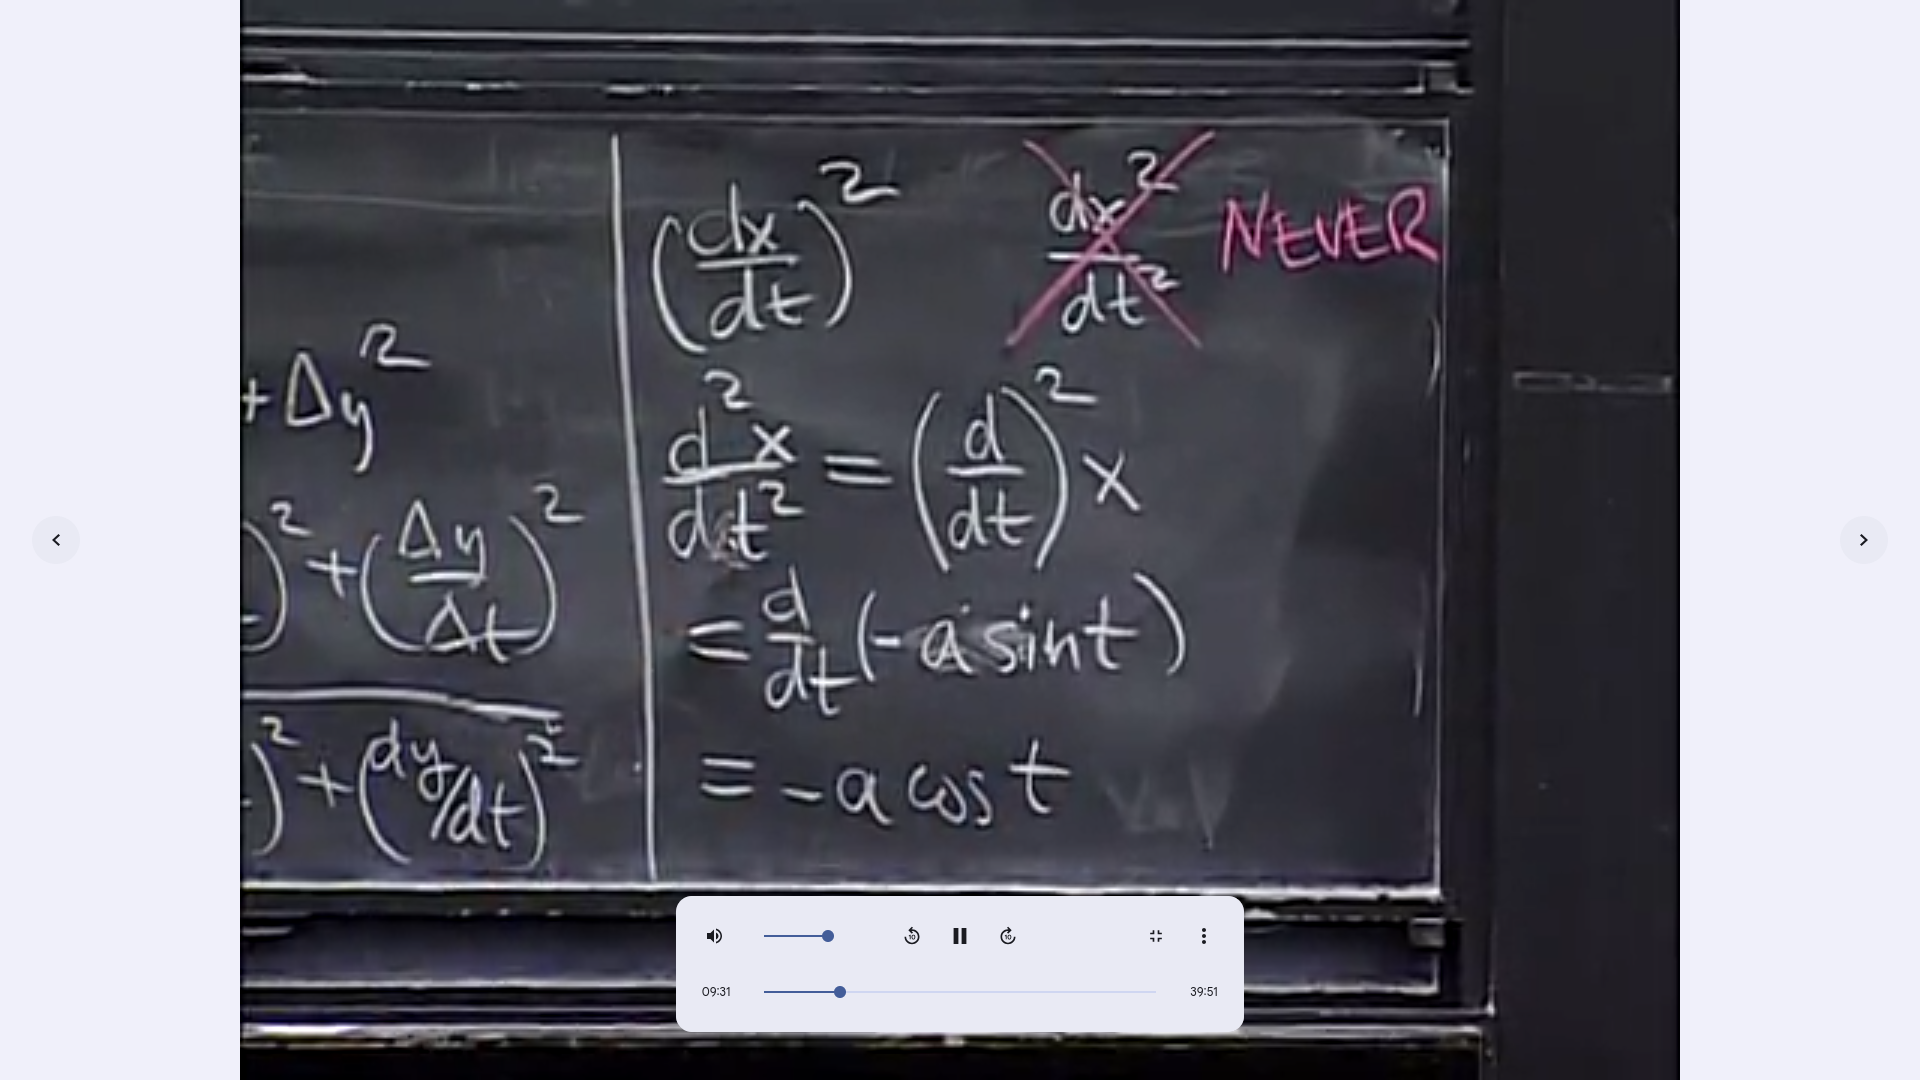 + Δy²
)² + (Δy/Δt)²
)² + (dy/dt)²
(dx/dt)² dx²/dt² NEVER
d²x/dt² = (d/dt)² x
= d/dt (-a sin t)
= -a cos t
09:31 39:51